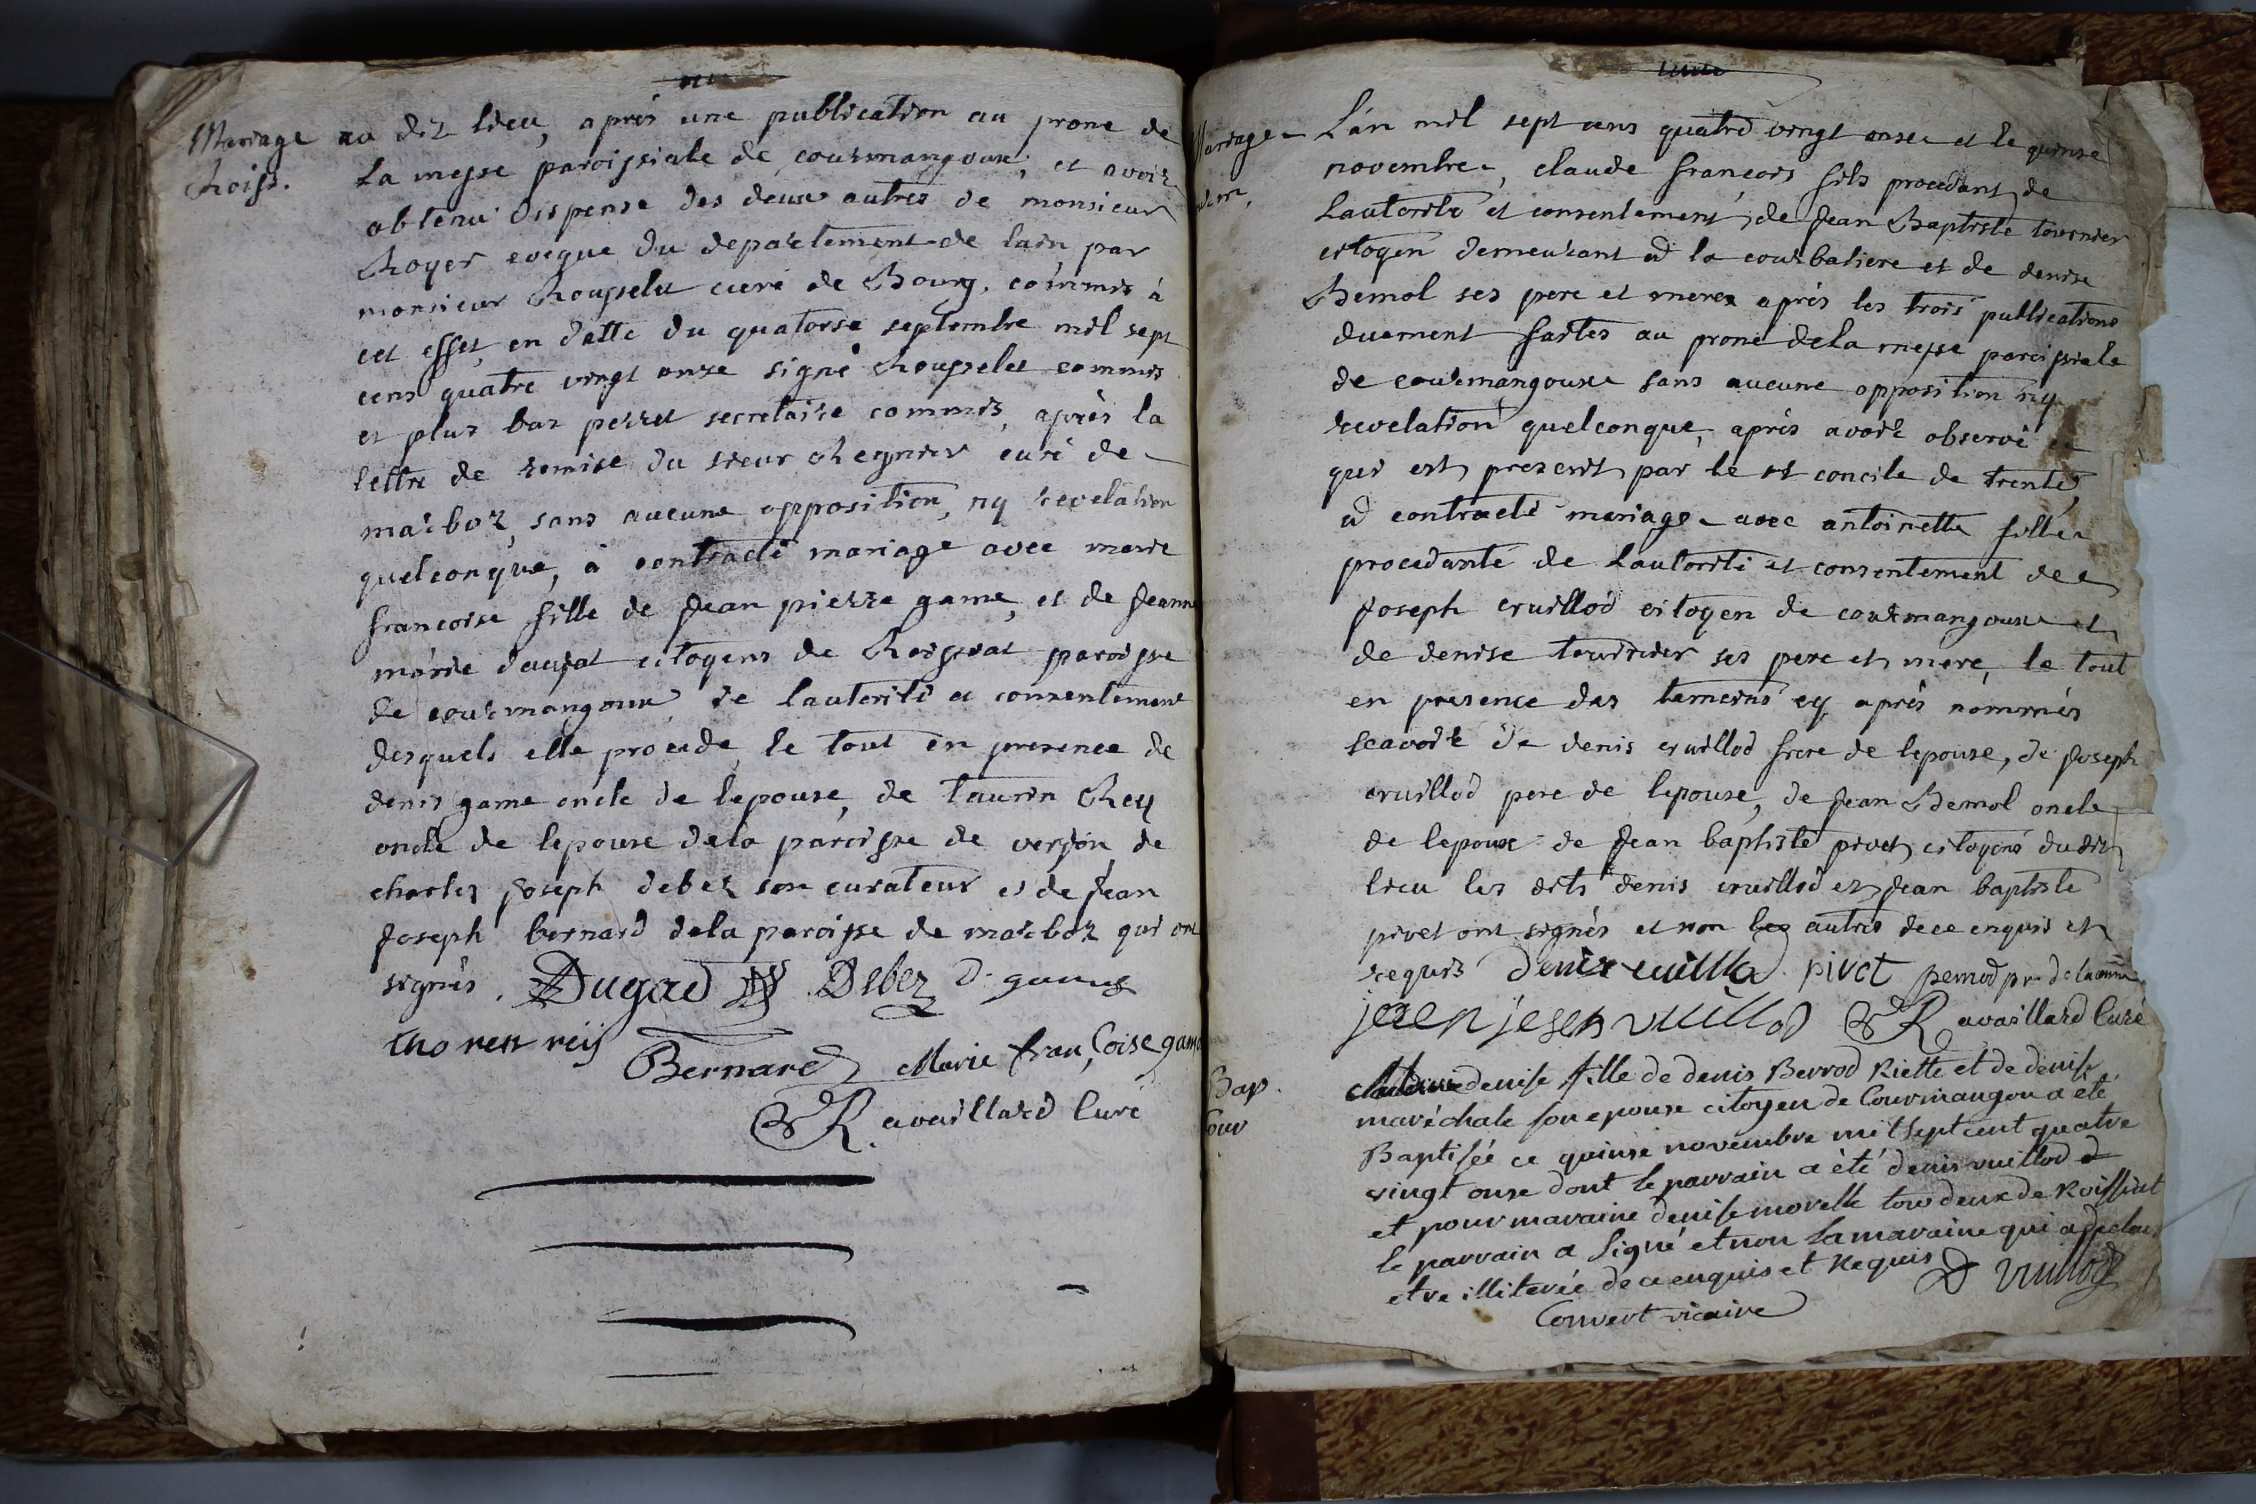 Mariage
Roiss.
au dit lieu, après une publication au prone de
la messe paroissiale de courmangoux, et avoir
obtenu dispense des deux autres de monsieur
Royer eveque du departement de lain, par
monsieur Rousselet curé de Bourg, commis à
cet effet, en datte du quatorse septembre mil sept
cens quatre vingt onze signé Rousselet commis
et plus bas perret secretaire commis, après la
lettre de remise du sieur Reynier curé de
marboz, sans aucune opposition, ny revelation
quelconque, à contracté mariage avec marie
francoise fille de Jean pierre game, et de Jeanne
marie citoyens de Roissiat paroisse
de courmangoux, de lautorité et consentement
desquels elle procede, le tout en presence de
denis game oncle de lepouse, de laurin Rey
oncle de lepouse dela paroisse de verjon, de
charles joseph debez son curateur et de Jean
Joseph bernard dela paroisse de marboz qui ont
signés. Dugad Debez D. game
lhoren reij
Bernard Marie francoise game
Ravaillard Curé
Mariage
L'an mil sept cens quatre vingt onse et le quinse
novembre, claude francois fils procedant de
Lautorité et consentement de Jean Baptiste tournier
citoyen demeurant à la courbatiere et de denise
Bemol ses pere et mere après les trois publications
duement faites au prone dela messe paroissiale
de courmangoux sans aucune opposition ny
revelation quelconque, après avoir observé ce
qui est prescrit par le st concile de trente
à contracté mariage avec antoinette fille
procedante de Lautorité et consentement de
Joseph cruillod citoyen de courmangoux et
de denise tournier ses pere et mere, le tout
en presence des temoins cy après nommés
scavoir de denis cruillod frere de lepouse, de joseph
cruillod pere de lepouse, de Jean Bemol oncle
de lepoux de Jean baptiste pivet citoyens dudit
lieu les dits denis cruillod et Jean baptiste
pivet ont signés et non les autres de ce enquis et
requis denis cuillod pivet
Ravaillard Curé
Bap.
Cour
denise fille de denis Berrod Riette et de denise
maréchale son epouse citoyen de Courmangou a été
Baptisée ce quinse novembre mil sept cent quatre
vingt onse dont le parrain a été denis vuillod
et pour maraine denise morelle tous deux de Roissiat
le parrain a signé et non la maraine qui a declaré
etre illiterée de ce enquis et Requis D vuillod
Convert vicaire